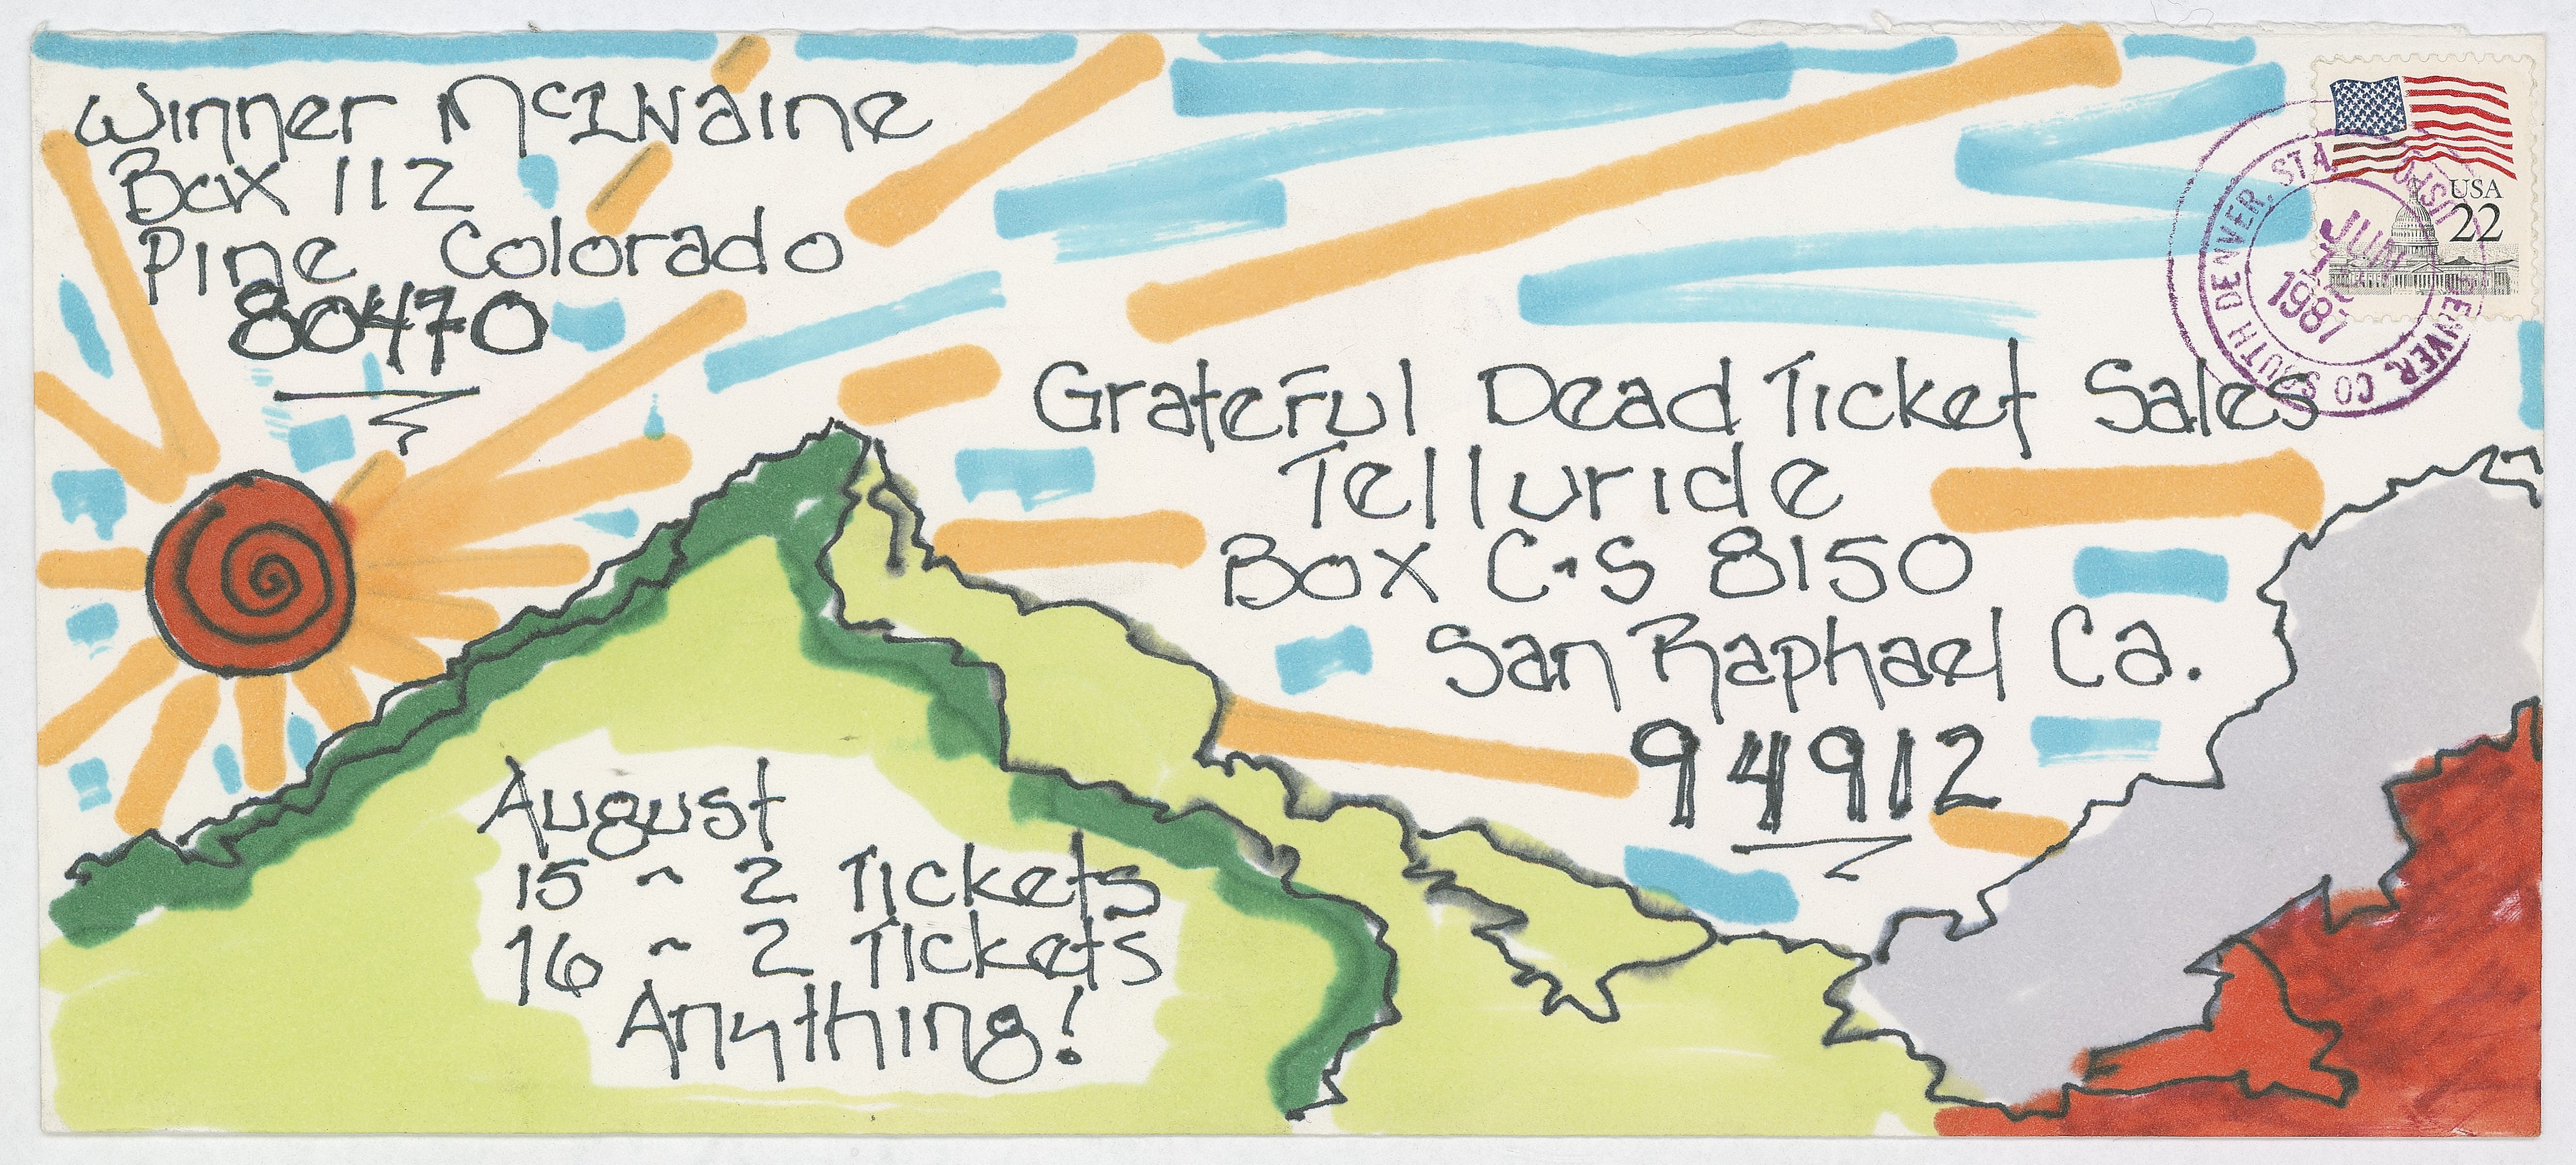 Winner McILVaine
Box 112
Pine Colorado
80470
USA
22
SOUTH DENVER, STA.
DENVER, CO
JUN
1987
Grateful Dead Ticket Sales
Telluride
Box C·S 8150
San Raphael Ca.
94912
August
15 ~ 2 Tickets
16 ~ 2 Tickets
Anything!